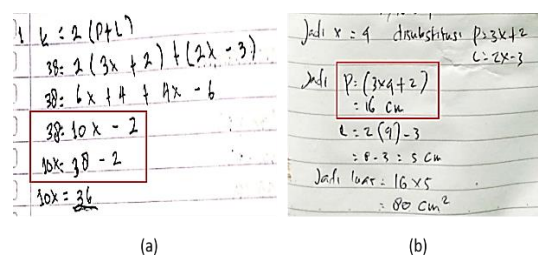 1 k = 2 (P+L)
38 = 2 (3x + 2) + (2x - 3)
38 = 6x + 4 + 4x - 6
38 = 10x - 2
10x = 38 - 2
10x = 36
(a)
Jadi x = 4 disubstitusi P = 3x+2
L = 2x-3
Jadi P = (3x4+2)
= 16 cm
L = 2(4)-3
= 8-3 = 5 cm
Jadi luas = 16 x 5
= 80 cm²
(b)